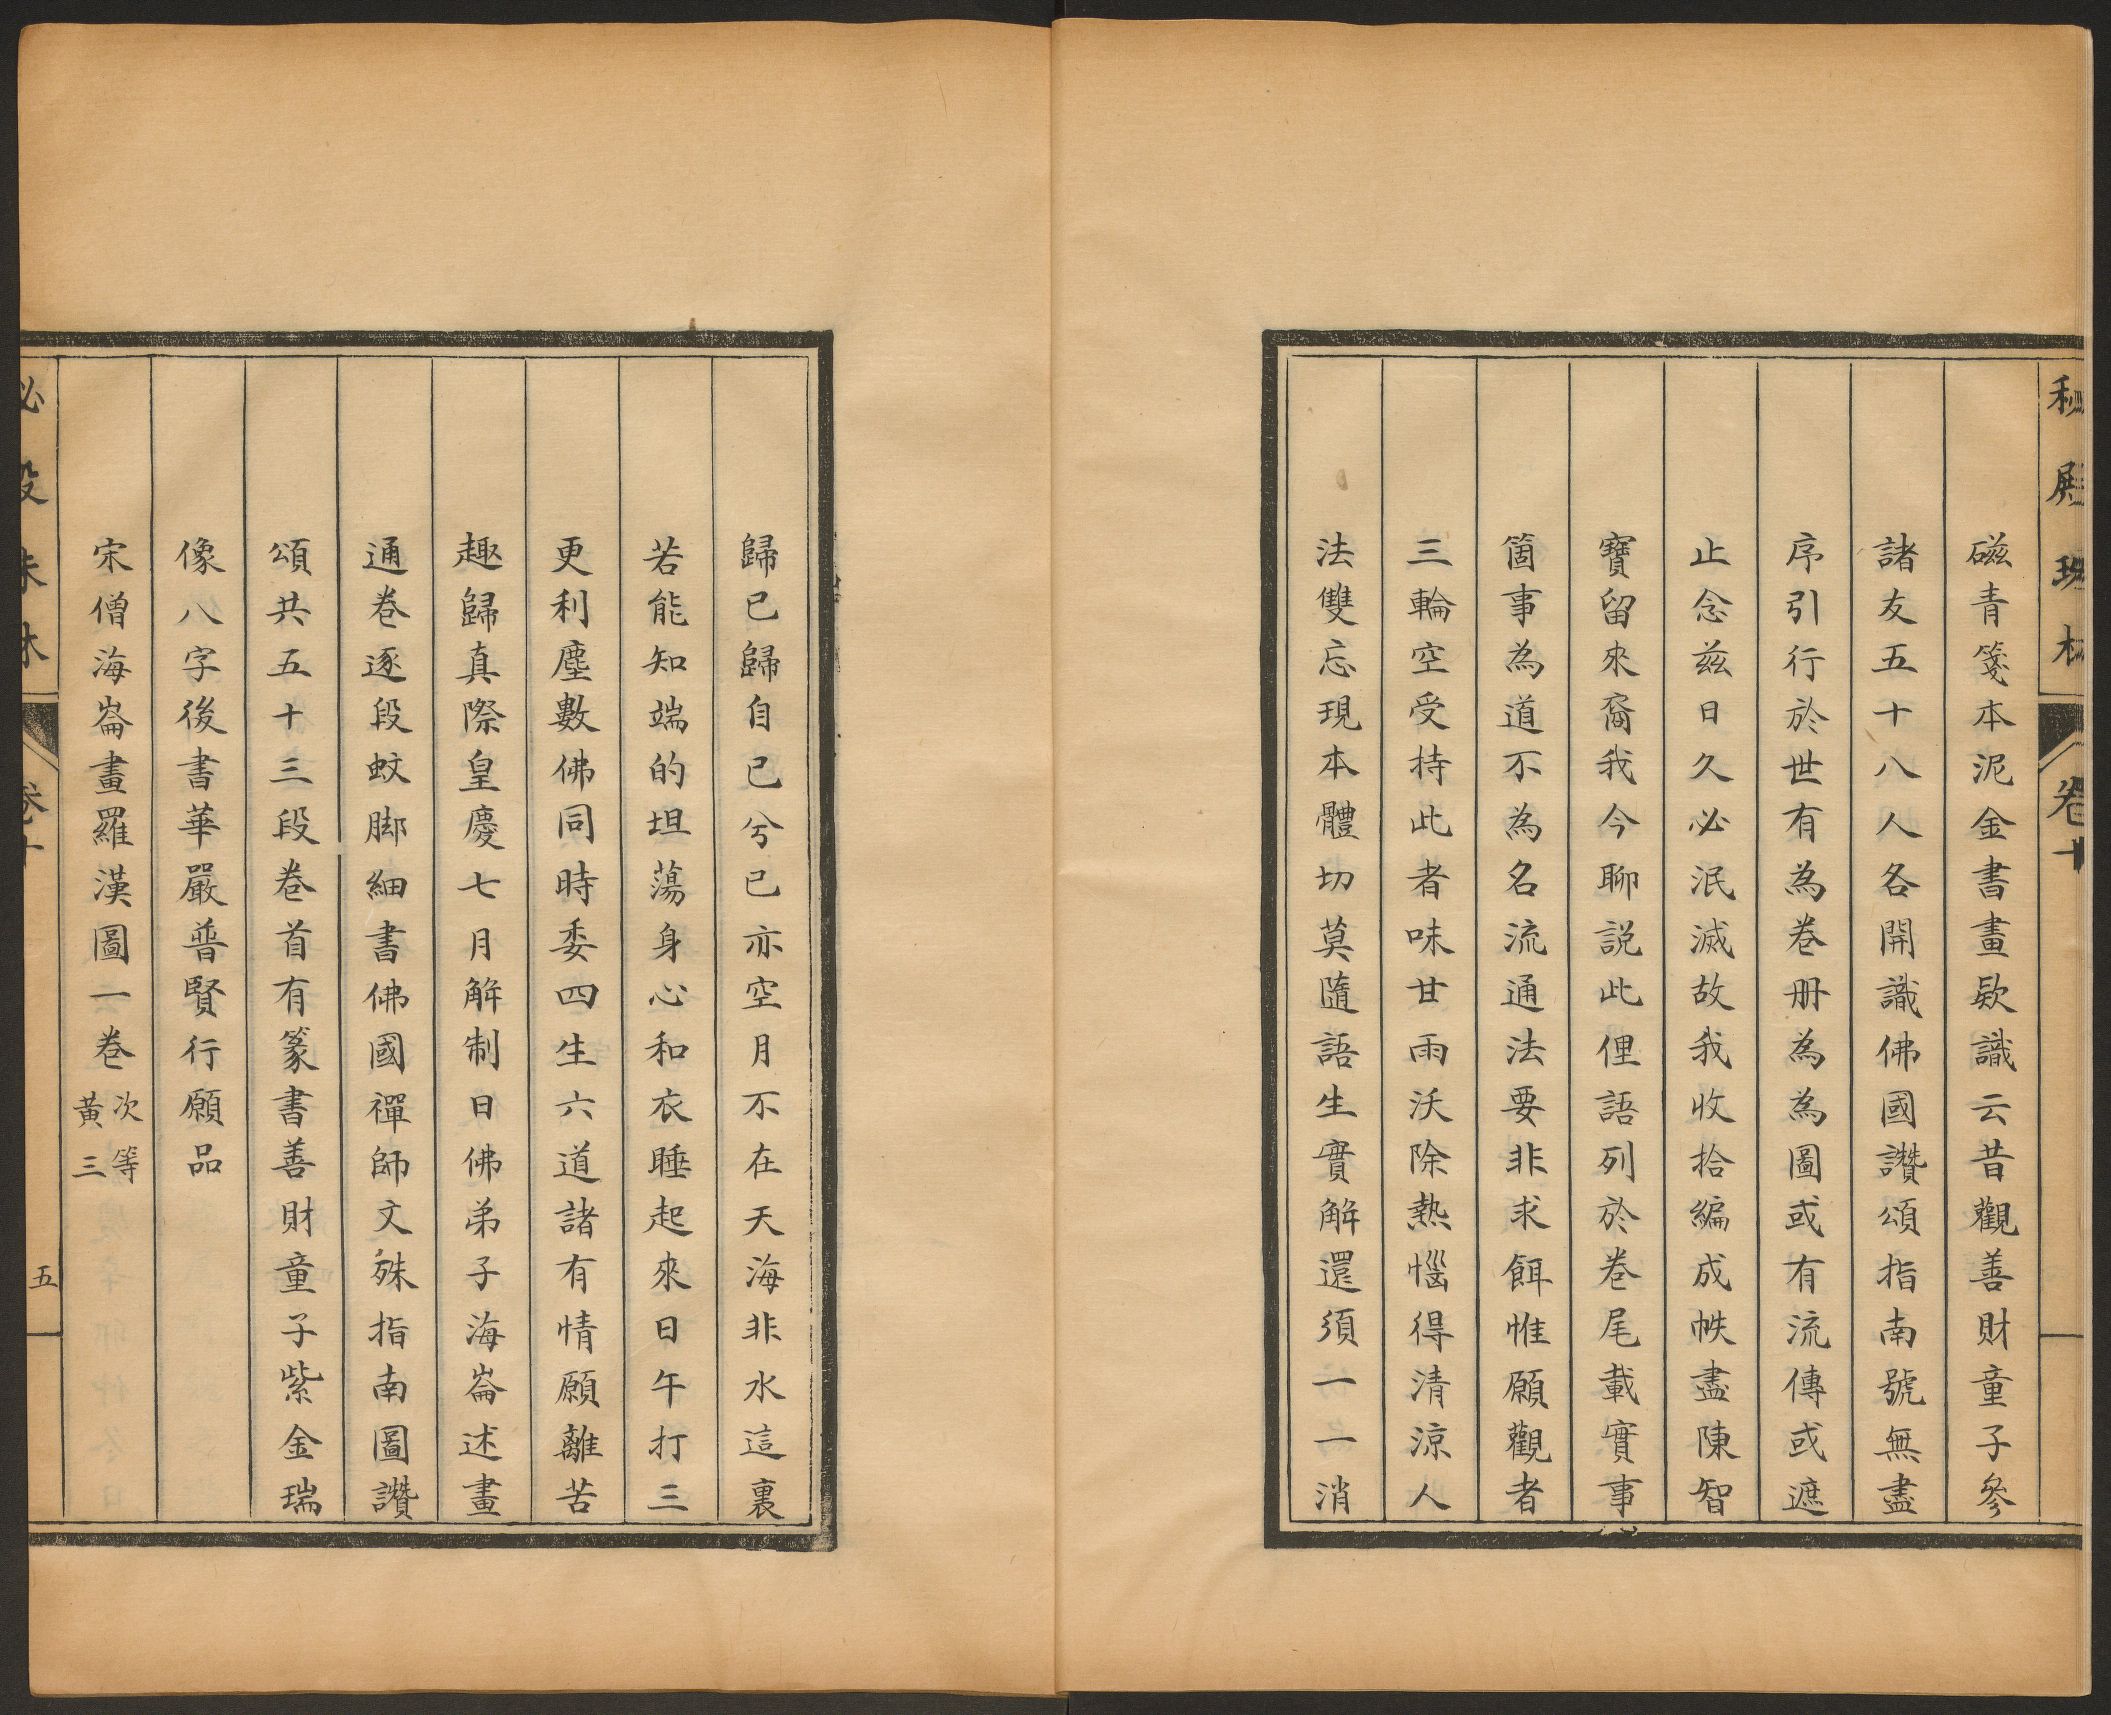 秘殿珠林
卷十
磁青箋本泥金書畫款識云昔觀善財童子參
諸友五十八人各開識佛國讚頌指南號無盡
序引行於世有為卷册為為圖或有流傳或遮
止念兹日久必泯滅故我收拾編成帙盡陳智
寶留來裔我今聊説此俚語列於卷尾載實事
箇事為道不為名流通法要非求餌惟願觀者
三輪空受持此者味甘雨沃除熱惱得清涼人
法雙忘現本體切莫隨語生實解還須一一消
歸已歸自已兮已亦空月不在天海非水這裏
若能知端的坦蕩身心和衣睡起來日午打三
更利塵數佛同時委四生六道諸有情願離苦
趣歸真際皇慶七月解制日佛弟子海崙述畫
通卷逐段蚊脚細書佛國禪師文殊指南圖讚
頌共五十三段卷首有篆書善財童子紫金瑞
像八字後書華嚴普賢行願品
宋僧海崙畫羅漢圖一卷 次等
黄三
秘殿珠林
卷十
五